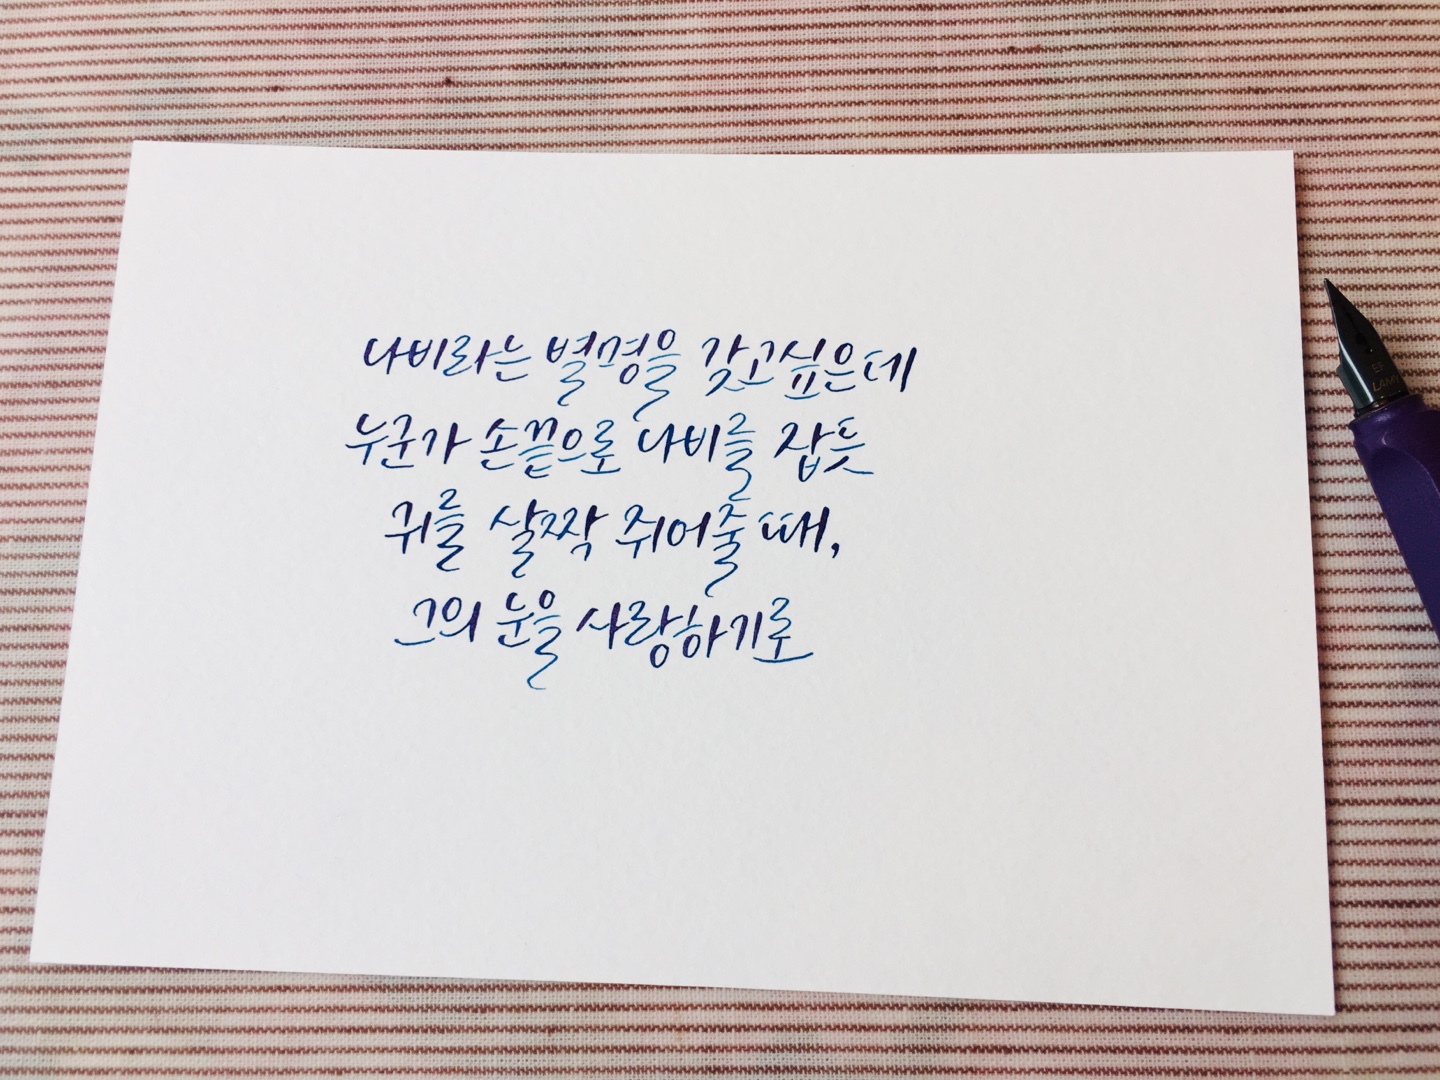 나비라는 별명을 갖고싶은데
누군가 손끝으로 나비를 잡듯
귀를 살짝 쥐어줄 때,
그의 눈을 사랑하기로
EF
LAMY